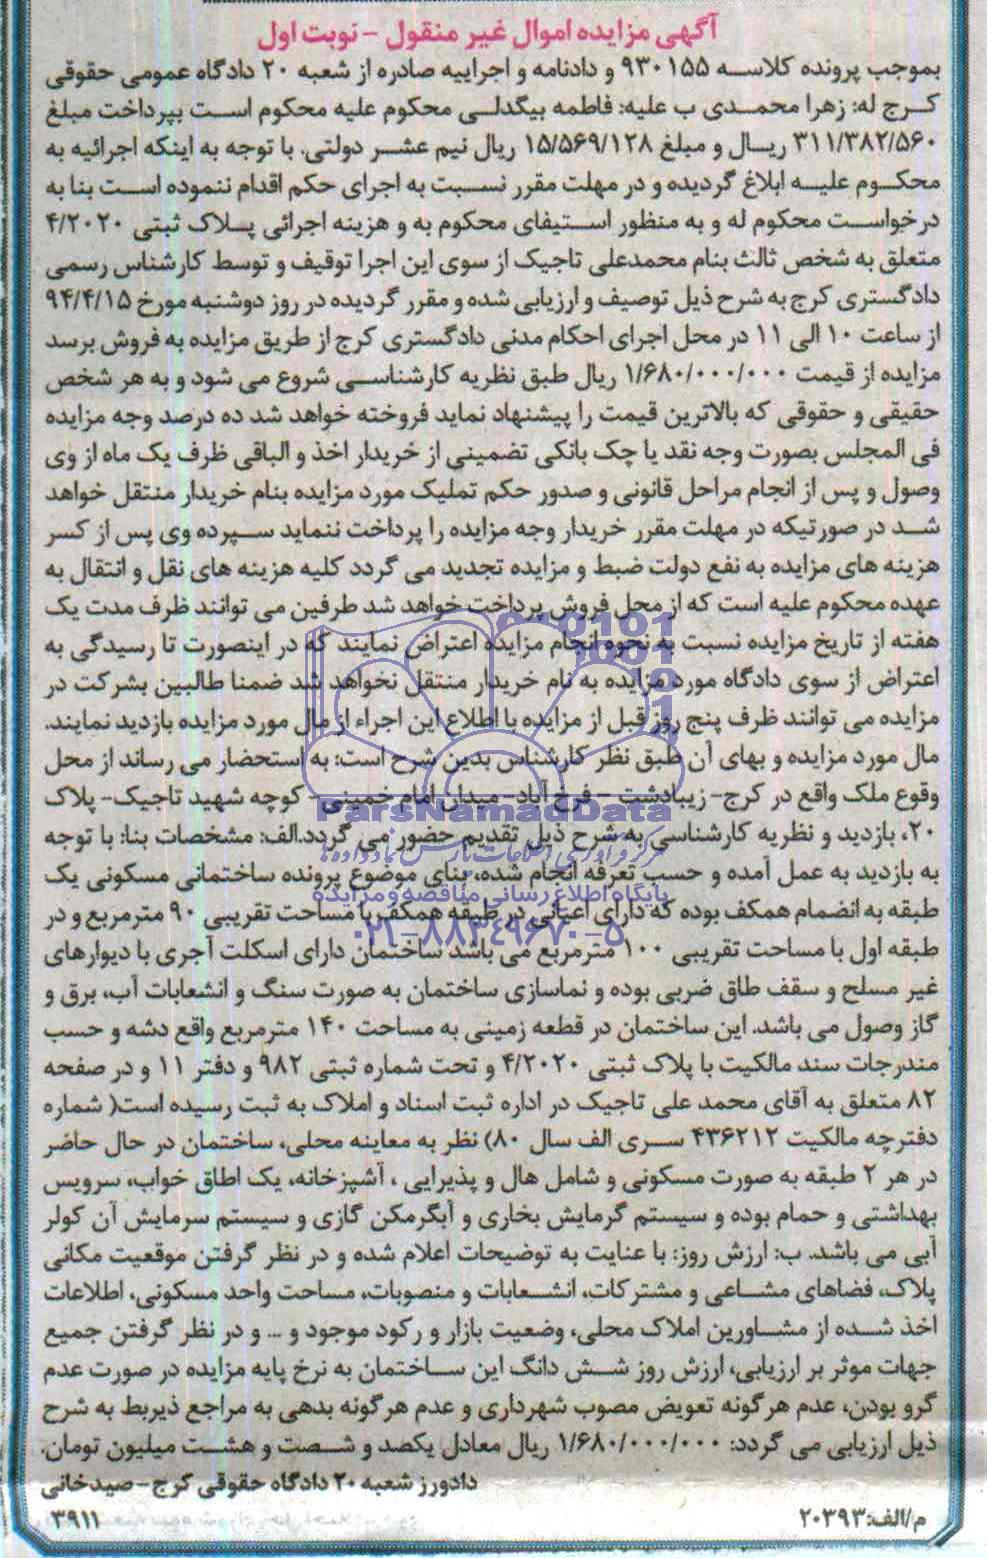 آگهی مزایده اموال غیر منقول - نوبت اول
بموجب پرونده کلاسه ۹۳۰۱۵۵ و دادنامه و اجراییه صادره از شعبه ۲۰ دادگاه عمومی حقوقی
کرج له: زهرا محمدی ب علیه: فاطمه بیگدلی محکوم علیه محکوم است بپرداخت مبلغ
۳۱۱/۳۸۲/۵۶۰ ریال و مبلغ ۱۵/۵۶۹/۱۲۸ ریال نیم عشر دولتی. با توجه به اینکه اجرائیه به
محکوم علیه ابلاغ گردیده و در مهلت مقرر نسبت به اجرای حکم اقدام ننموده است بنا به
درخواست محکوم له و به منظور استیفای محکوم به و هزینه اجرائی پلاک ثبتی ۴/۲۰۲۰
متعلق به شخص ثالث بنام محمدعلی تاجیک از سوی این اجرا توقیف و توسط کارشناس رسمی
دادگستری کرج به شرح ذیل توصیف و ارزیابی شده و مقرر گردیده در روز دوشنبه مورخ ۹۴/۴/۱۵
از ساعت ۱۰ الی ۱۱ در محل اجرای احکام مدنی دادگستری کرج از طریق مزایده به فروش برسد
مزایده از قیمت ۱/۶۸۰/۰۰۰/۰۰۰ ریال طبق نظریه کارشناسی شروع می شود و به هر شخص
حقیقی و حقوقی که بالاترین قیمت را پیشنهاد نماید فروخته خواهد شد ده درصد وجه مزایده
فی المجلس بصورت وجه نقد یا چک بانکی تضمینی از خریدار اخذ و الباقی ظرف یک ماه از وی
وصول و پس از انجام مراحل قانونی و صدور حکم تملیک مورد مزایده بنام خریدار منتقل خواهد
شد در صورتیکه در مهلت مقرر خریدار وجه مزایده را پرداخت ننماید سپرده وی پس از کسر
هزینه های مزایده به نفع دولت ضبط و مزایده تجدید می گردد کلیه هزینه های نقل و انتقال به
عهده محکوم علیه است که از محل فروش پرداخت خواهد شد طرفین می توانند ظرف مدت یک
هفته از تاریخ مزایده نسبت به نحوه انجام مزایده اعتراض نمایند که در اینصورت تا رسیدگی به
اعتراض از سوی دادگاه مورد مزایده به نام خریدار منتقل نخواهد شد ضمنا طالبین بشرکت در
مزایده می توانند ظرف پنج روز قبل از مزایده با اطلاع این اجراء از مال مورد مزایده بازدید نمایند.
مال مورد مزایده و بهای آن طبق نظر کارشناس بدین شرح است: به استحضار می رساند از محل
وقوع ملک واقع در کرج- زیبادشت - فرخ آباد- میدان امام خمینی- کوچه شهید تاجیک- پلاک
۲۰، بازدید و نظریه کارشناسی به شرح ذیل تقدیم حضور می گردد.الف: مشخصات بنا: با توجه
به بازدید به عمل آمده و حسب تعرفه انجام شده، بنای موضوع پرونده ساختمانی مسکونی یک
طبقه به انضمام همکف بوده که دارای اعیانی در طبقه همکف با مساحت تقریبی ۹۰ مترمربع و در
طبقه اول با مساحت تقریبی ۱۰۰ مترمربع می باشد ساختمان دارای اسکلت آجری با دیوارهای
غیر مسلح و سقف طاق ضربی بوده و نماسازی ساختمان به صورت سنگ و انشعابات آب، برق و
گاز وصول می باشد. این ساختمان در قطعه زمینی به مساحت ۱۴۰ مترمربع واقع دشه و حسب
مندرجات سند مالکیت با پلاک ثبتی ۴/۲۰۲۰ و تحت شماره ثبتی ۹۸۲ و دفتر ۱۱ و در صفحه
۸۲ متعلق به آقای محمد علی تاجیک در اداره ثبت اسناد و املاک به ثبت رسیده است( شماره
دفترچه مالکیت ۴۳۶۲۱۲ سری الف سال ۸۰) نظر به معاینه محلی، ساختمان در حال حاضر
در هر ۲ طبقه به صورت مسکونی و شامل هال و پذیرایی ، آشپزخانه، یک اطاق خواب، سرویس
بهداشتی و حمام بوده و سیستم گرمایش بخاری و آبگرمکن گازی و سیستم سرمایش آن کولر
آبی می باشد. ب: ارزش روز: با عنایت به توضیحات اعلام شده و در نظر گرفتن موقعیت مکانی
پلاک، فضاهای مشاعی و مشترکات، انشعابات و منصوبات، مساحت واحد مسکونی، اطلاعات
اخذ شده از مشاورین املاک محلی، وضعیت بازار و رکود موجود و ... و در نظر گرفتن جمیع
جهات موثر بر ارزیابی، ارزش روز شش دانگ این ساختمان به نرخ پایه مزایده در صورت عدم
گرو بودن، عدم هر گونه تعویض مصوب شهرداری و عدم هر گونه بدهی به مراجع ذیربط به شرح
ذیل ارزیابی می گردد: ۱/۶۸۰/۰۰۰/۰۰۰ ریال معادل یکصد و شصت و هشت میلیون تومان.
دادورز شعبه ۲۰ دادگاه حقوقی کرج- صیدخانی
م/الف:۲۰۳۹۳ ۳۹۱۱
ParsNamadData
مرکز فرآوری اطلاعات پارس نماد داده ها
پایگاه اطلاع رسانی مناقصه و مزایده
۰۲۱-۸۸۳۴۹۶۷۰-۵